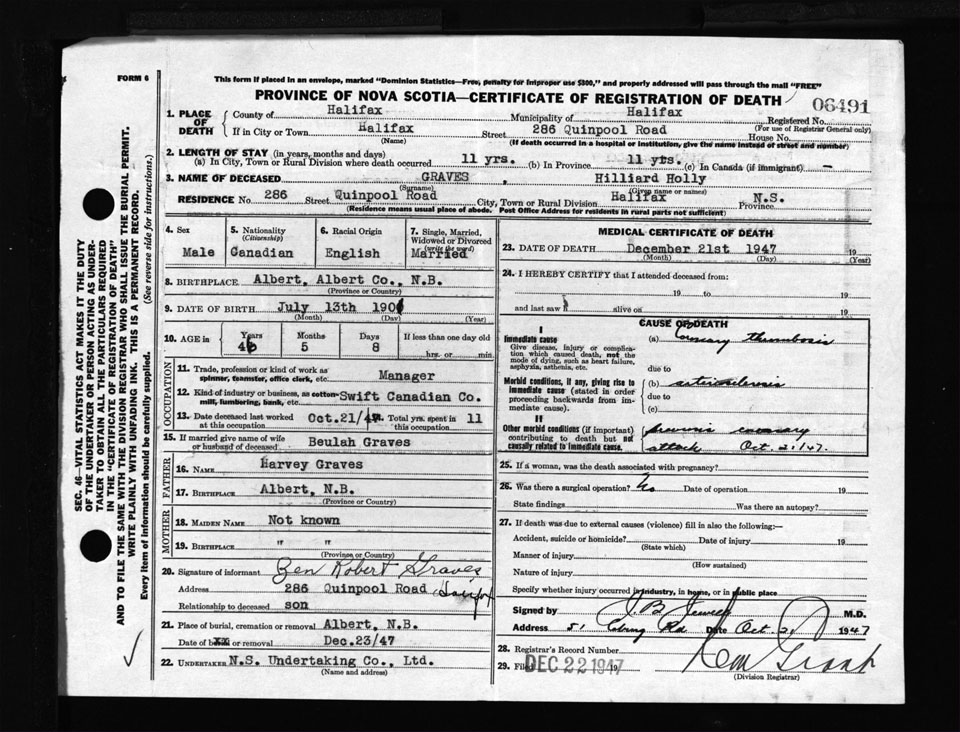 FORM 6
This form if placed in an envelope, marked "Dominion Statistics—Free, penalty for improper use $300," and properly addressed will pass through the mail "FREE"
PROVINCE OF NOVA SCOTIA—CERTIFICATE OF REGISTRATION OF DEATH
06491
1. PLACE OF DEATH
County of Halifax Municipality of Halifax Registered No.
(For use of Registrar General only)
If in City or Town Halifax Street 286 Quinpool Road House No.
(Name) (If death occurred in a hospital or institution, give the name instead of street and number)
2. LENGTH OF STAY (in years, months and days)
(a) In City, Town or Rural Division where death occurred 11 yrs. (b) In Province 11 yrs. (c) In Canada (if immigrant) —
3. NAME OF DECEASED GRAVES , Hilliard Holly
(Surname) (Given name or names)
RESIDENCE No. 286 Street Quinpool Road City, Town or Rural Division Halifax Province N.S.
(Residence means usual place of abode. Post Office Address for residents in rural parts not sufficient)
4. Sex Male
5. Nationality (Citizenship) Canadian
6. Racial Origin English
7. Single, Married, Widowed or Divorced (write the word) Married
8. BIRTHPLACE Albert, Albert Co., N.B.
(Province or Country)
9. DATE OF BIRTH July 13th 190
(Month) (Day) (Year)
10. AGE in Years Months 5 Days 8 If less than one day old hrs. or min.
OCCUPATION
11. Trade, profession or kind of work as spinner, teamster, office clerk, etc. Manager
12. Kind of industry or business, as cotton mill, lumbering, bank, etc. Swift Canadian Co.
13. Date deceased last worked at this occupation Oct.21/47 14. Total yrs. spent in this occupation 11
15. If married give name of wife or husband of deceased Beulah Graves
FATHER
16. NAME Harvey Graves
17. BIRTHPLACE Albert, N.B.
(Province or Country)
MOTHER
18. MAIDEN NAME Not known
19. BIRTHPLACE " "
(Province or Country)
20. Signature of informant Robert Graves
Address 286 Quinpool Road Halifax
Relationship to deceased son
21. Place of burial, cremation or removal Albert, N.B.
Date of bxx or removal Dec.23/47
22. UNDERTAKER N.S. Undertaking Co., Ltd.
(Name and address)
MEDICAL CERTIFICATE OF DEATH
23. DATE OF DEATH December 21st 1947 19
(Month) (Day) (Year)
24. I HEREBY CERTIFY that I attended deceased from:
19 to 19
and last saw h alive on 19
CAUSE OF DEATH
I
Immediate cause
Give disease, injury or complication which caused death, not the mode of dying, such as heart failure, asphyxia, asthenia, etc.
(a) Coronary thrombosis
due to
Morbid conditions, if any, giving rise to immediate cause (stated in order proceeding backwards from immediate cause).
(b) arteriosclerosis
due to
(c)
II
Other morbid conditions (if important) contributing to death but not causally related to immediate cause.
previous coronary
attack Oct. 21/47.
25. If a woman, was the death associated with pregnancy?
26. Was there a surgical operation? No Date of operation 19
State findings Was there an autopsy?
27. If death was due to external causes (violence) fill in also the following:—
Accident, suicide or homicide? Date of injury 19
(State which)
Manner of injury
(How sustained)
Nature of injury
Specify whether injury occurred in industry, in home, or in public place
Signed by M.D.
Address 51 Coburg Rd Date Oct 1947
28. Registrar's Record Number
29. Filed DEC 22 1947 19
(Division Registrar)
SEC. 46—VITAL STATISTICS ACT MAKES IT THE DUTY
OF THE UNDERTAKER OR PERSON ACTING AS UNDER-
TAKER TO OBTAIN ALL THE PARTICULARS REQUIRED
IN THE "CERTIFICATE OF REGISTRATION OF DEATH"
AND TO FILE THE SAME WITH THE DIVISION REGISTRAR WHO SHALL ISSUE THE BURIAL PERMIT.
WRITE PLAINLY WITH UNFADING INK. THIS IS A PERMANENT RECORD.
Every item of information should be carefully supplied. (See reverse side for instructions.)